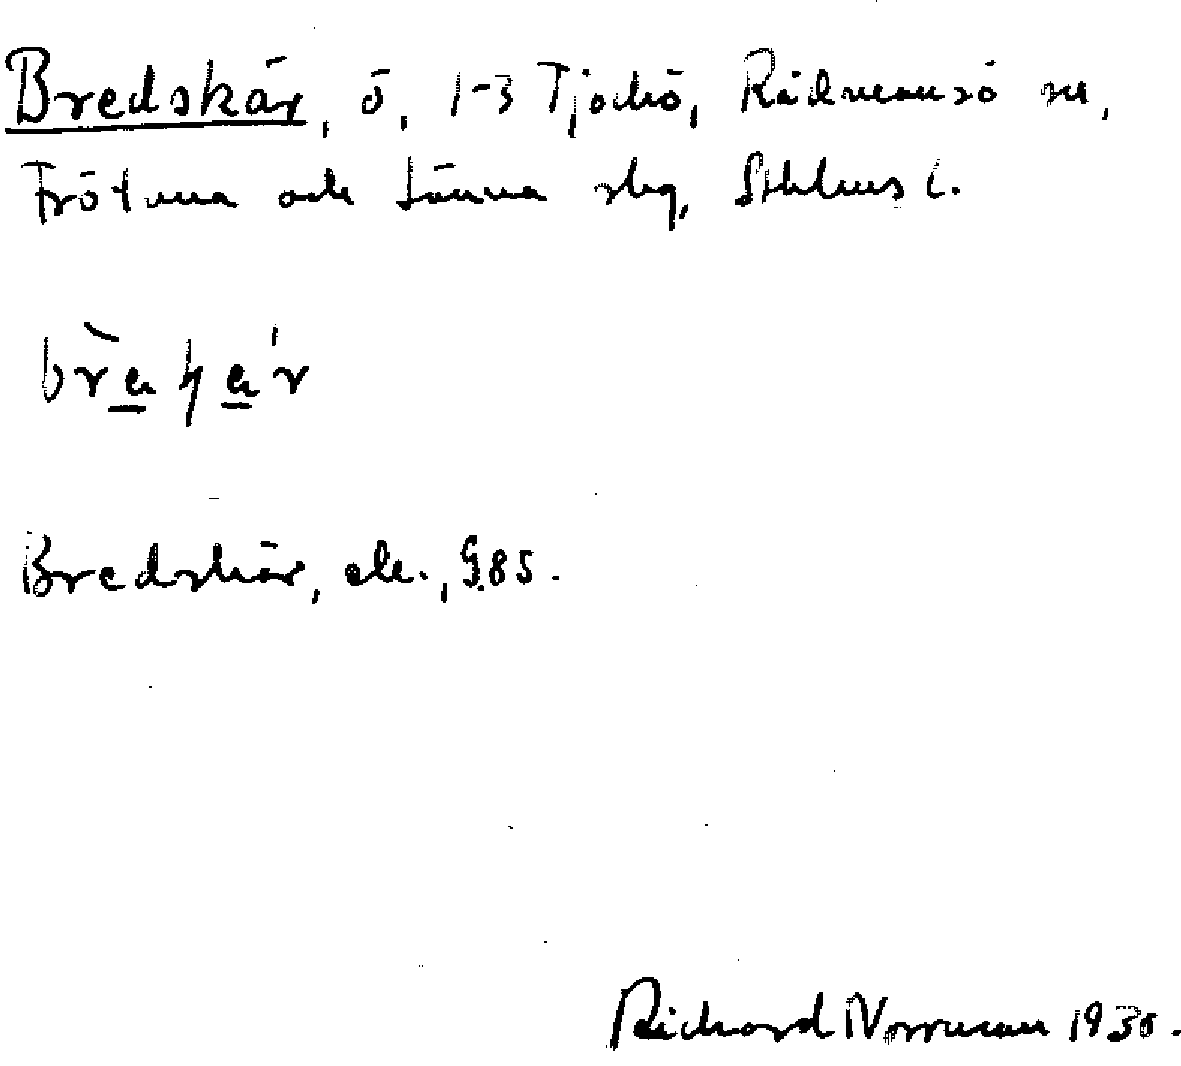 Bredskär, ö, 1-3 Tjockö, Rådmansö sn,
Frötuna och Länna skg, Sthlms l.
Bredskär, ek., G.85.
Richard Norrman 1930.